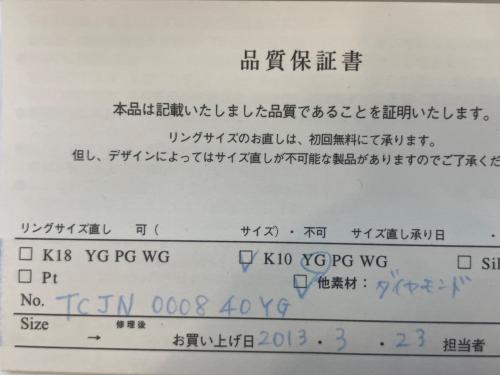 品質保証書
本品は記載いたしました品質であることを証明いたします。
リングサイズのお直しは、初回無料にて承ります。
但し、デザインによってはサイズ直しが不可能な製品がありますのでご了承くだ
リングサイズ直し 可 ( サイズ)・ 不可 サイズ直し承り日 ・
□ K18 YG PG WG ☑ K10 YG PG WG □ Sil
□ Pt ☑ 他素材：ダイヤモンド
No. TCJN 0008 40YG
Size 修理後
→ お買い上げ日 2013 ・ 3 ・ 23 担当者